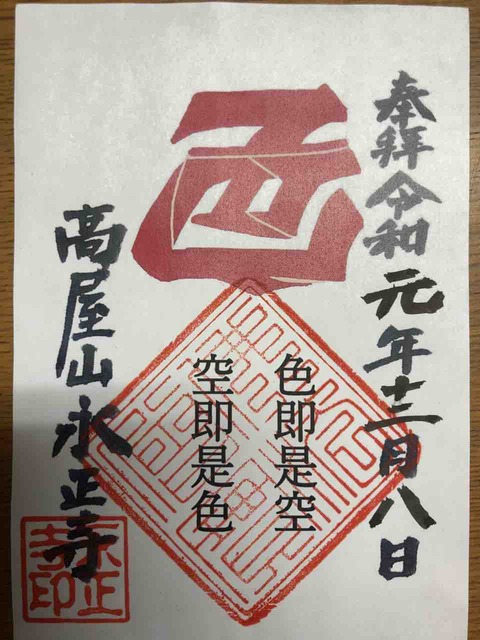 奉拝令和元年十二月八日
色即是空
空即是色
高屋山永正寺
永正
寺印